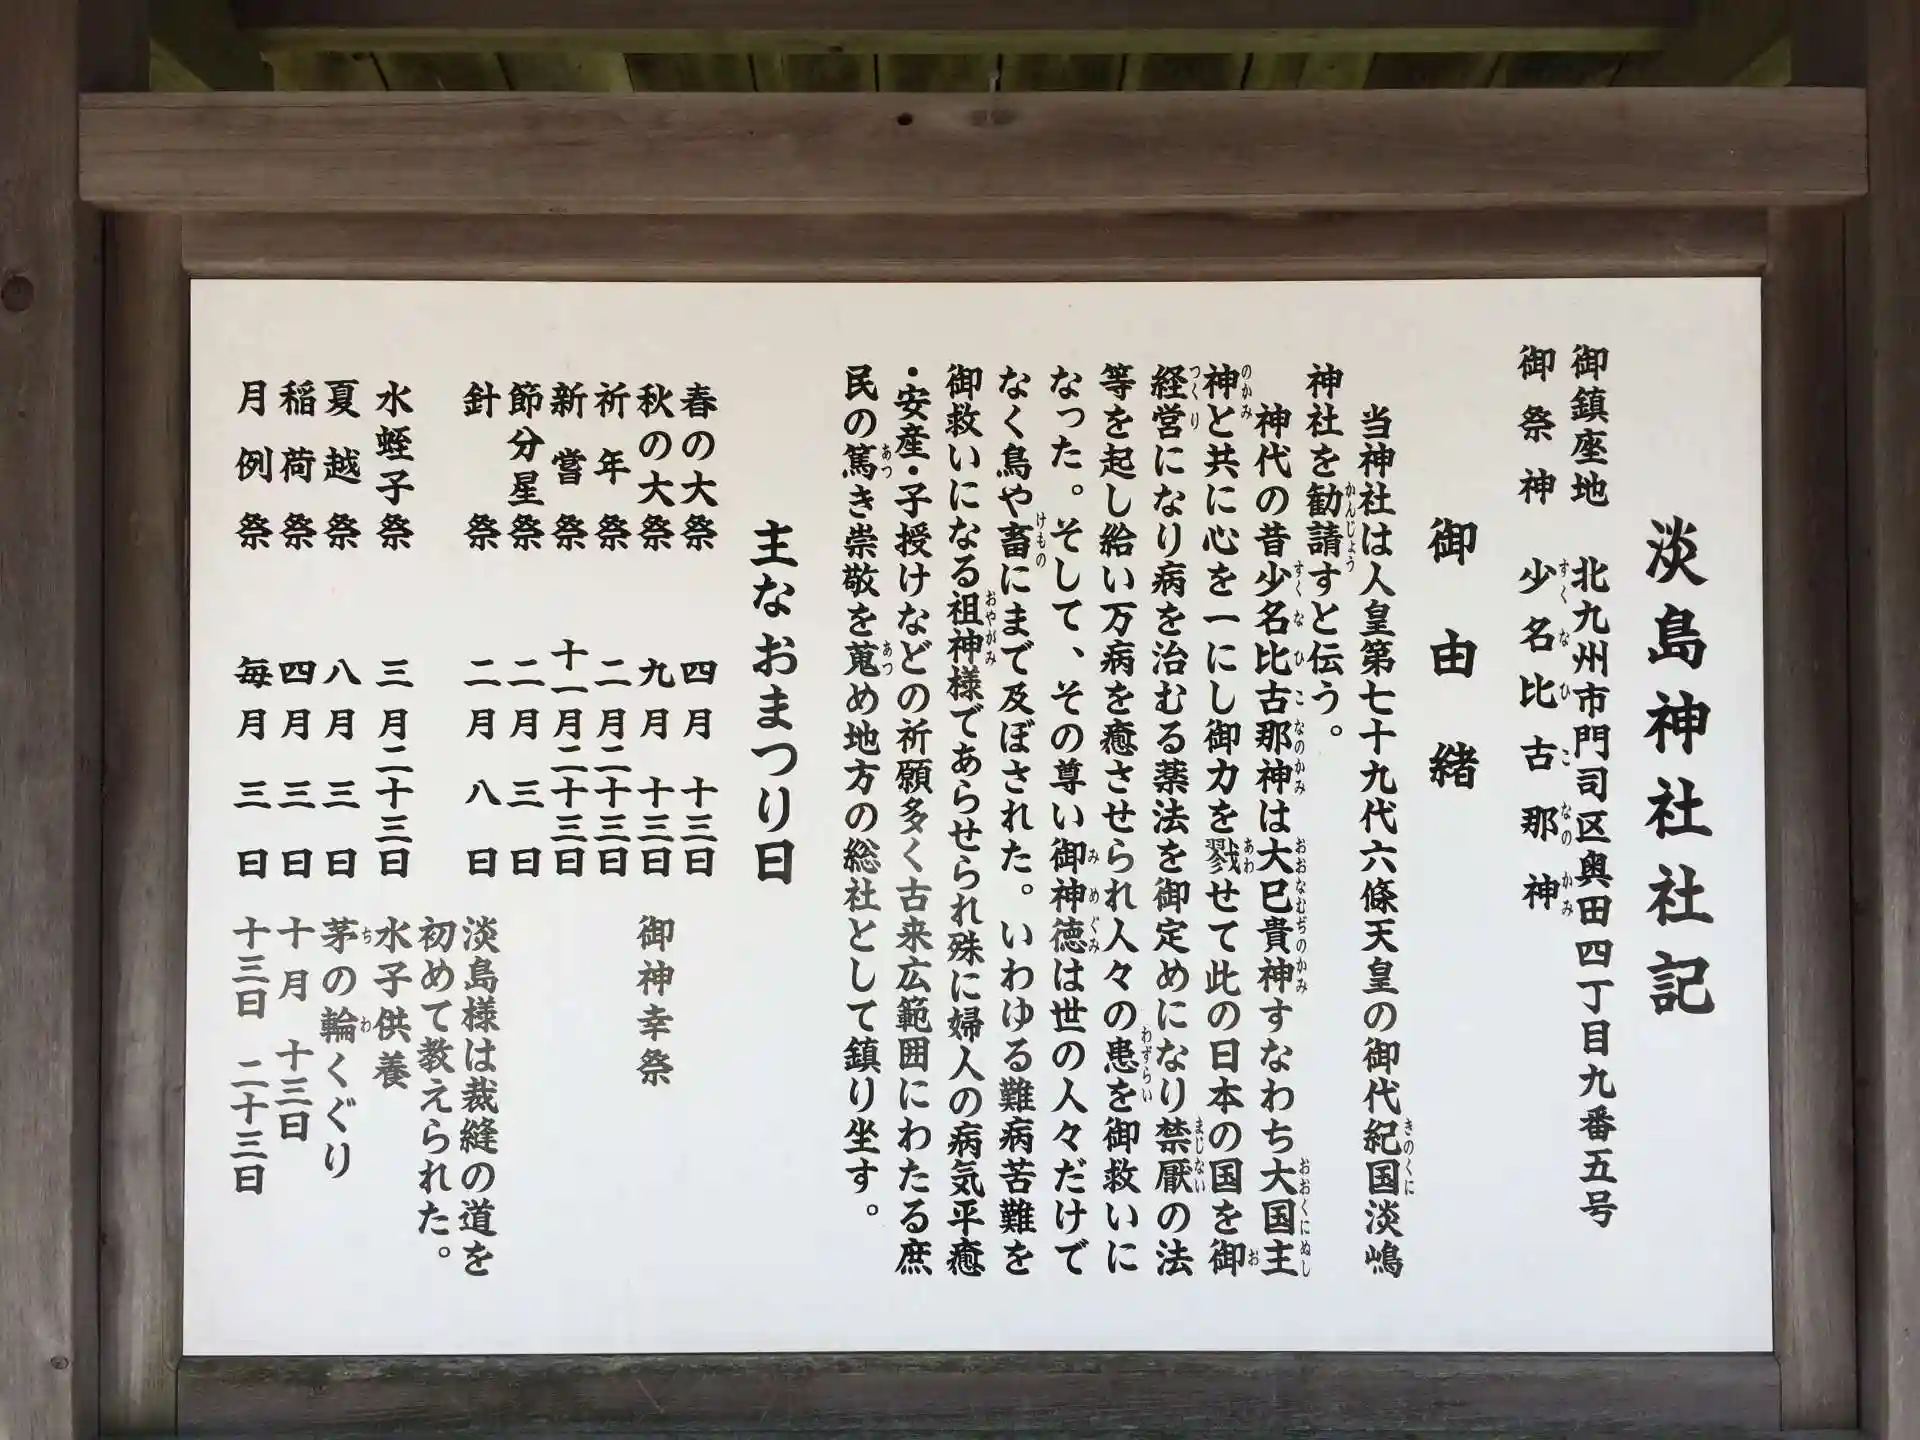 淡島神社社記
御鎮座地 北九州市門司区奥田四丁目九番五号
御祭神 少名比古那神
御由緒
当神社は人皇第七十九代六條天皇の御代紀国淡嶋
神社を勧請すと伝う。
神代の昔少名比古那神は大巳貴神すなわち大国主
神と共に心を一にし御力を戮せて此の日本の国を御
経営になり病を治むる薬法を御定めになり禁厭の法
等を起し給い万病を癒させられ人々の患を御救いに
なった。そして、その尊い御神徳は世の人々だけで
なく鳥や畜にまで及ぼされた。いわゆる難病苦難を
御救いになる祖神様であらせられ殊に婦人の病気平癒
・安産・子授けなどの祈願多く古来広範囲にわたる庶
民の篤き崇敬を蒐め地方の総社として鎮り坐す。
主なおまつり日
春の大祭 四月十三日
秋の大祭 九月十三日 御神幸祭
祈年祭 二月二十三日
新嘗祭 十一月二十三日
節分星祭 二月三日
針祭 二月八日 淡島様は裁縫の道を
初めて教えられた。
水蛭子祭 三月二十三日 水子供養
夏越祭 八月三日 茅の輪くぐり
稲荷祭 四月三日 十月十三日
月例祭 毎月三日 十三日 二十三日